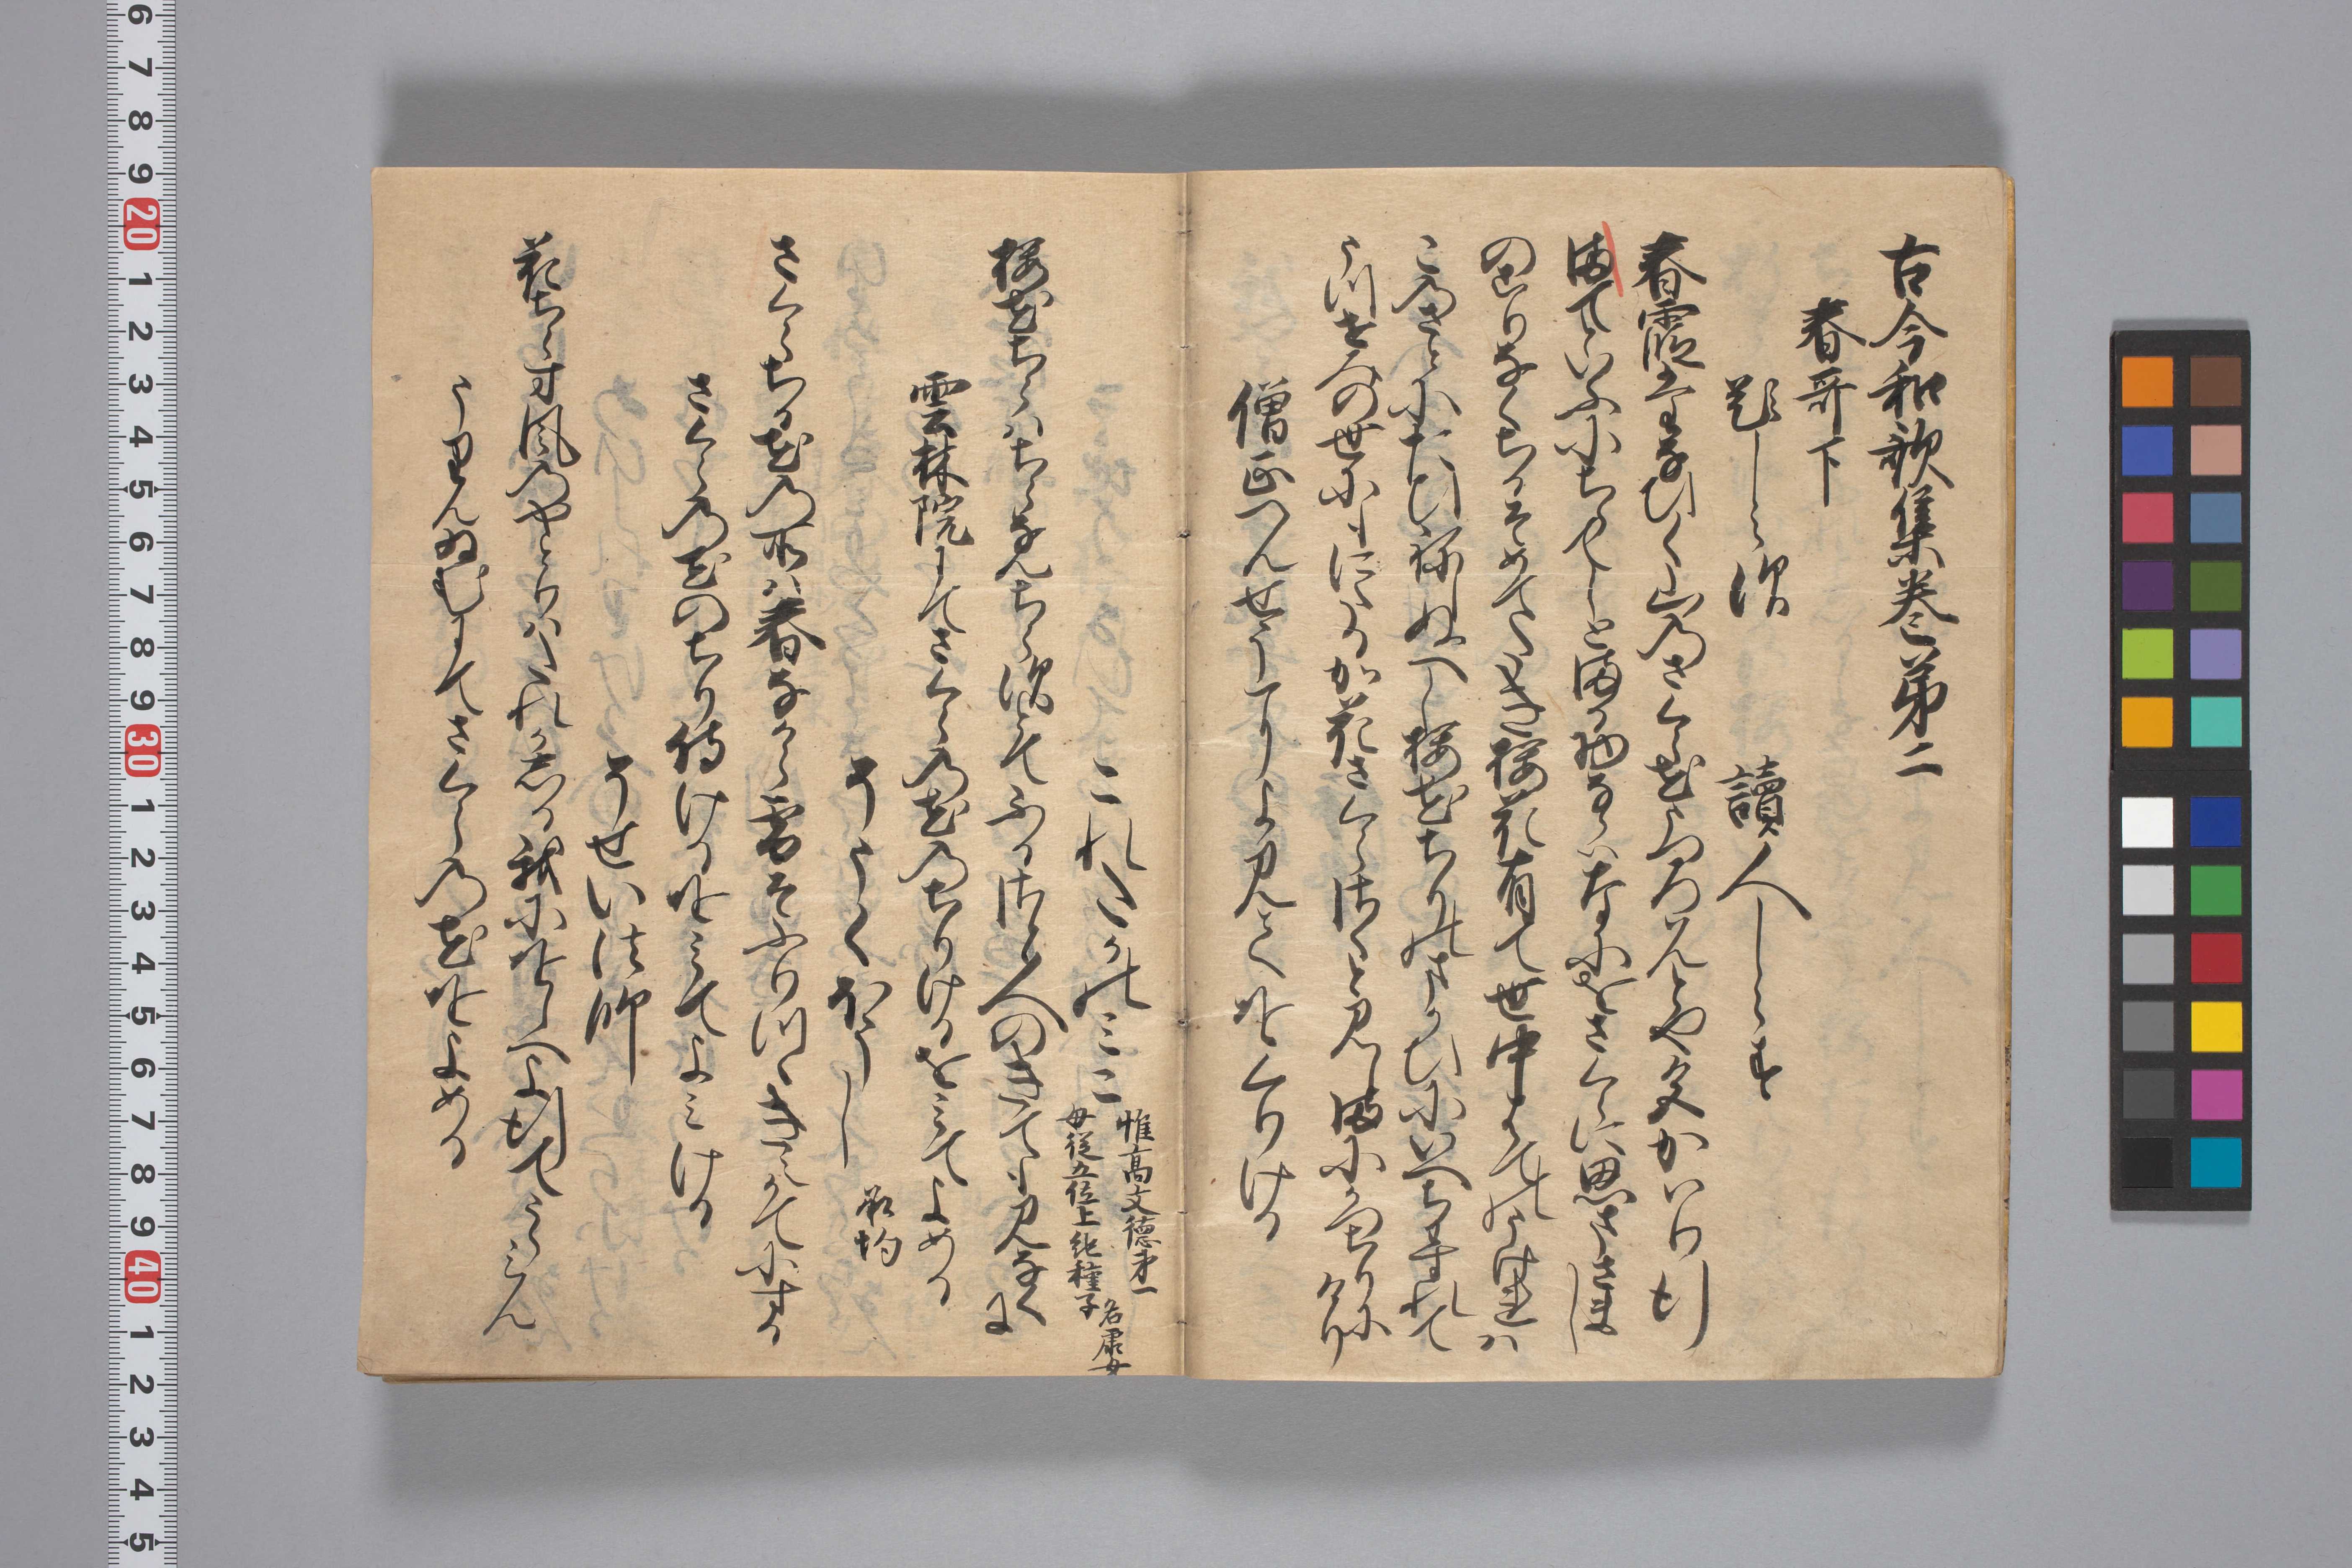 古今和歌集巻第二
春哥下
題しらす
讀人しらす
春霞たなひく山のさくら花うつろはんとや色かはり行
待てといふにちらてしとまる物ならはなにを桜に思まさまし
のこりなくちるそめてたき桜花有て世中はてのうけれは
このさとにたひねしぬへし桜花ちりのまかひにいへちわすれて
うつせみの世にもにたるか花さくらさくと見しまにかつちりにけり
僧正へんせうによみてをくりける
これたかのみこ
惟高文徳第一
母従五位上紀種子
名虎女
桜花ちらはちらなんちらすとてふるさと人のきても見なくに
雲林院にてさくらの花のちりけるを見てよめる
そうくほうし
承均
さくらちる花の所は春なから雪そふりつゝきえかてにする
さくらの花のちり侍けるをみてよみける
そせい法師
花ちらす風のやとりはたれかしる我にをしへよ行てうらみん
うりんゐんにてさくらの花をよめる